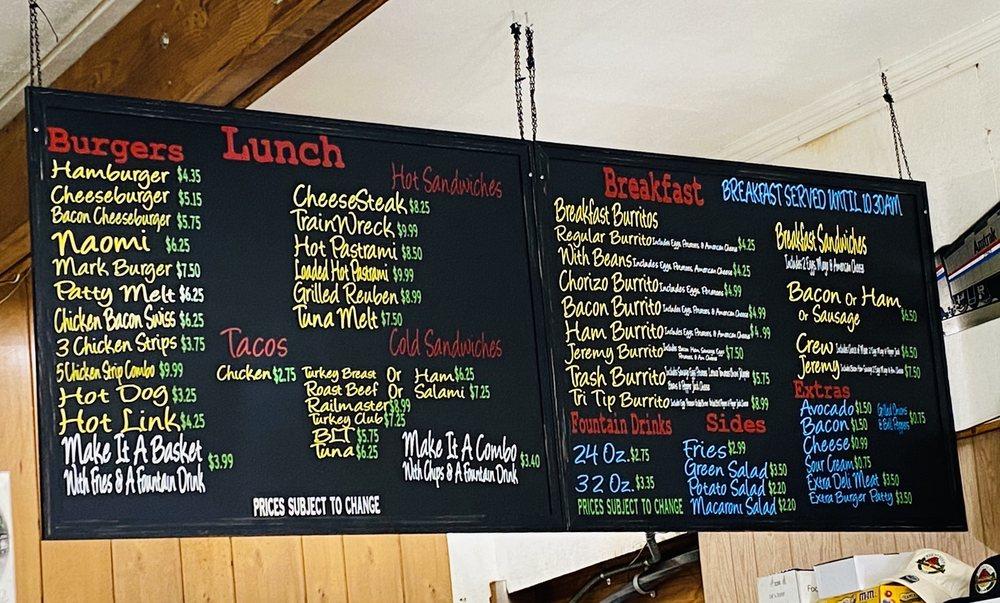 Burgers
Hamburger $4.35
Cheeseburger $5.15
Bacon Cheeseburger $5.75
Naomi $6.25
Mark Burger $7.50
Patty Melt $6.25
Chicken Bacon Swiss $6.25
3 Chicken Strips $3.75
5 Chicken Strip Combo $9.99
Hot Dog $3.25
Hot Link $4.25
Make It A Basket $3.99
With Fries & A Fountain Drink
Lunch
Hot Sandwiches
CheeseSteak $8.25
TrainWreck $9.99
Hot Pastrami $8.50
Loaded Hot Pastrami $9.99
Grilled Reuben $8.99
Tuna Melt $7.50
Tacos
Chicken $2.75
Cold Sandwiches
Turkey Breast Or Ham $6.25
Roast Beef Or Salami $7.25
Railmaster $8.99
Turkey Club $7.25
BLT $5.75
Tuna $6.25
Make It A Combo $3.40
With Chips & A Fountain Drink
PRICES SUBJECT TO CHANGE
Breakfast
BREAKFAST SERVED UNTIL 10:30AM
Breakfast Burritos
Regular Burrito Includes Eggs, Potatoes & American Cheese $4.25
With Beans Includes Eggs, Potatoes, American Cheese $4.25
Chorizo Burrito Includes Eggs, Potatoes $4.99
Bacon Burrito Includes Eggs, Potatoes & American Cheese $4.99
Ham Burrito Includes Eggs, Potatoes & American Cheese $4.99
Jeremy Burrito Includes Bacon, Ham, Sausage, Eggs, Potatoes & Am. Cheese $7.50
Trash Burrito $5.75
Tri Tip Burrito $8.99
Breakfast Sandwiches
Includes 2 Eggs, Mayo & American Cheese
Bacon Or Ham
Or Sausage $6.50
Crew $6.50
Jeremy $7.50
Fountain Drinks
24 Oz. $2.75
32 Oz. $3.35
PRICES SUBJECT TO CHANGE
Sides
Fries $2.99
Green Salad $3.50
Potato Salad $2.20
Macaroni Salad $2.20
Extras
Avocado $1.50
Bacon $1.50
Cheese $0.99
Sour Cream $0.75
Extra Deli Meat $3.50
Extra Burger Patty $3.50
Grilled Onions
& Bell Peppers $0.75